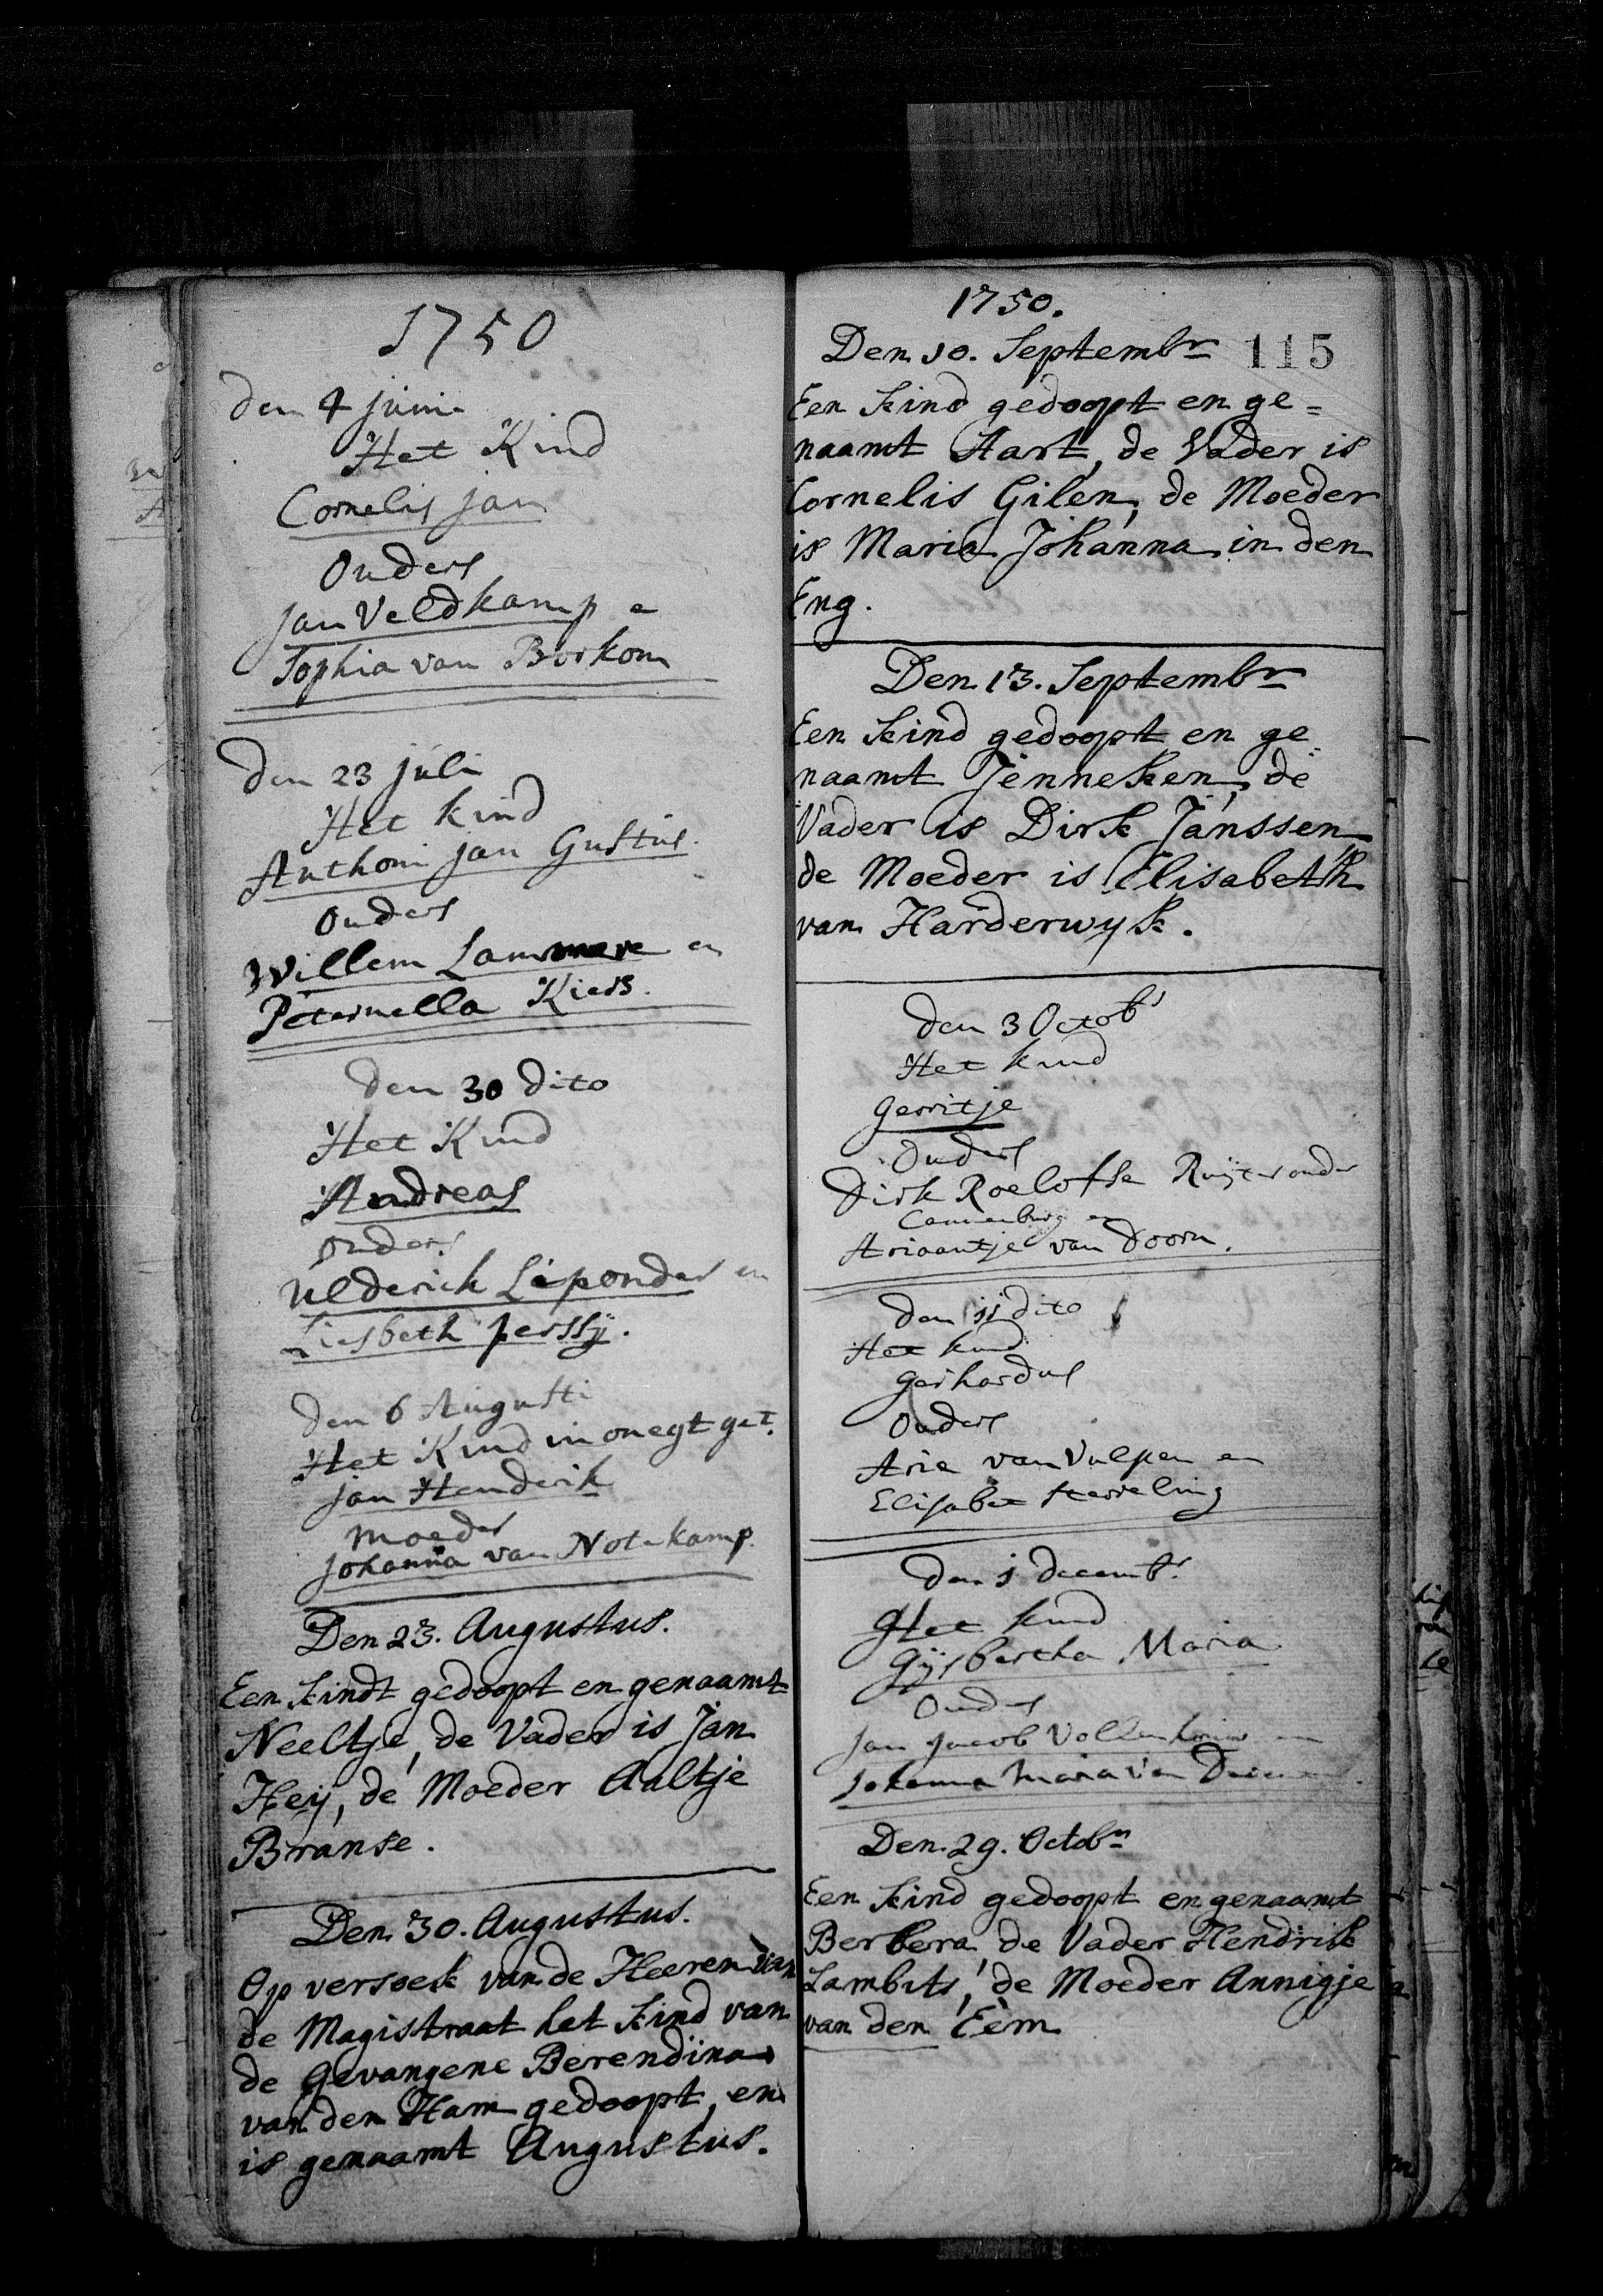 1750
den 4 junii
Het Kind
Cornelis jan
Ouders
Jan Veldkamp e
Sophia van Borkom
den 23 juli
Het kind
Anthoni jan Gustus.
Ouders
Willem en
Peternella Kiers.
den 30 dito
Het Kind
Andreas
Ouders
Ulderich Liponder en
Liesbeth perssij.
den 6 Augusti
Het Kind in onegt get.
jan Henderik
moeder
Johanna van Notekamp.
Den 23. Augustus.
Een kindt gedoopt en genaamt
Neeltje, de Vader is Jan
Heij, de Moeder Aaltje
Branse.
Den 30. Augustus.
Op versoek van de Heeren van
de Magistraat het kind van
de Gevangene Berendina
van den Ham gedoopt, en
is genaamt Augustus.
1750.
Den 10. Septembr 115
Een kind gedoopt en ge=
naamt Aart, de Vader is
Cornelis Gilen, de Moeder
is Maria Johanna in den
Eng.
Den 13. Septembr
Een kind gedoopt en ge=
naamt Jenneken, de
Vader is Dirk Janssen
de Moeder is Elisabeth
van Harderwyk.
den 3 Octobr
Het kind
Gerritje
Ouders
Dirk Roelofse Ruijter onder
Cannenburg en
Ariaantje van Doorn.
den 11 dito
Het kind
Gerhardus
Ouders
Arie van Vulpen en
Elisabet
den 1 decembr
Het kind
Gijsbertha Maria
Ouders
Jan Jacob en
Johanna Maria van
Den 29. Octobr
Een kind gedoopt en genaamt
Berbera, de Vader Hendrik
Lambits, de Moeder Annigje
van den Eem